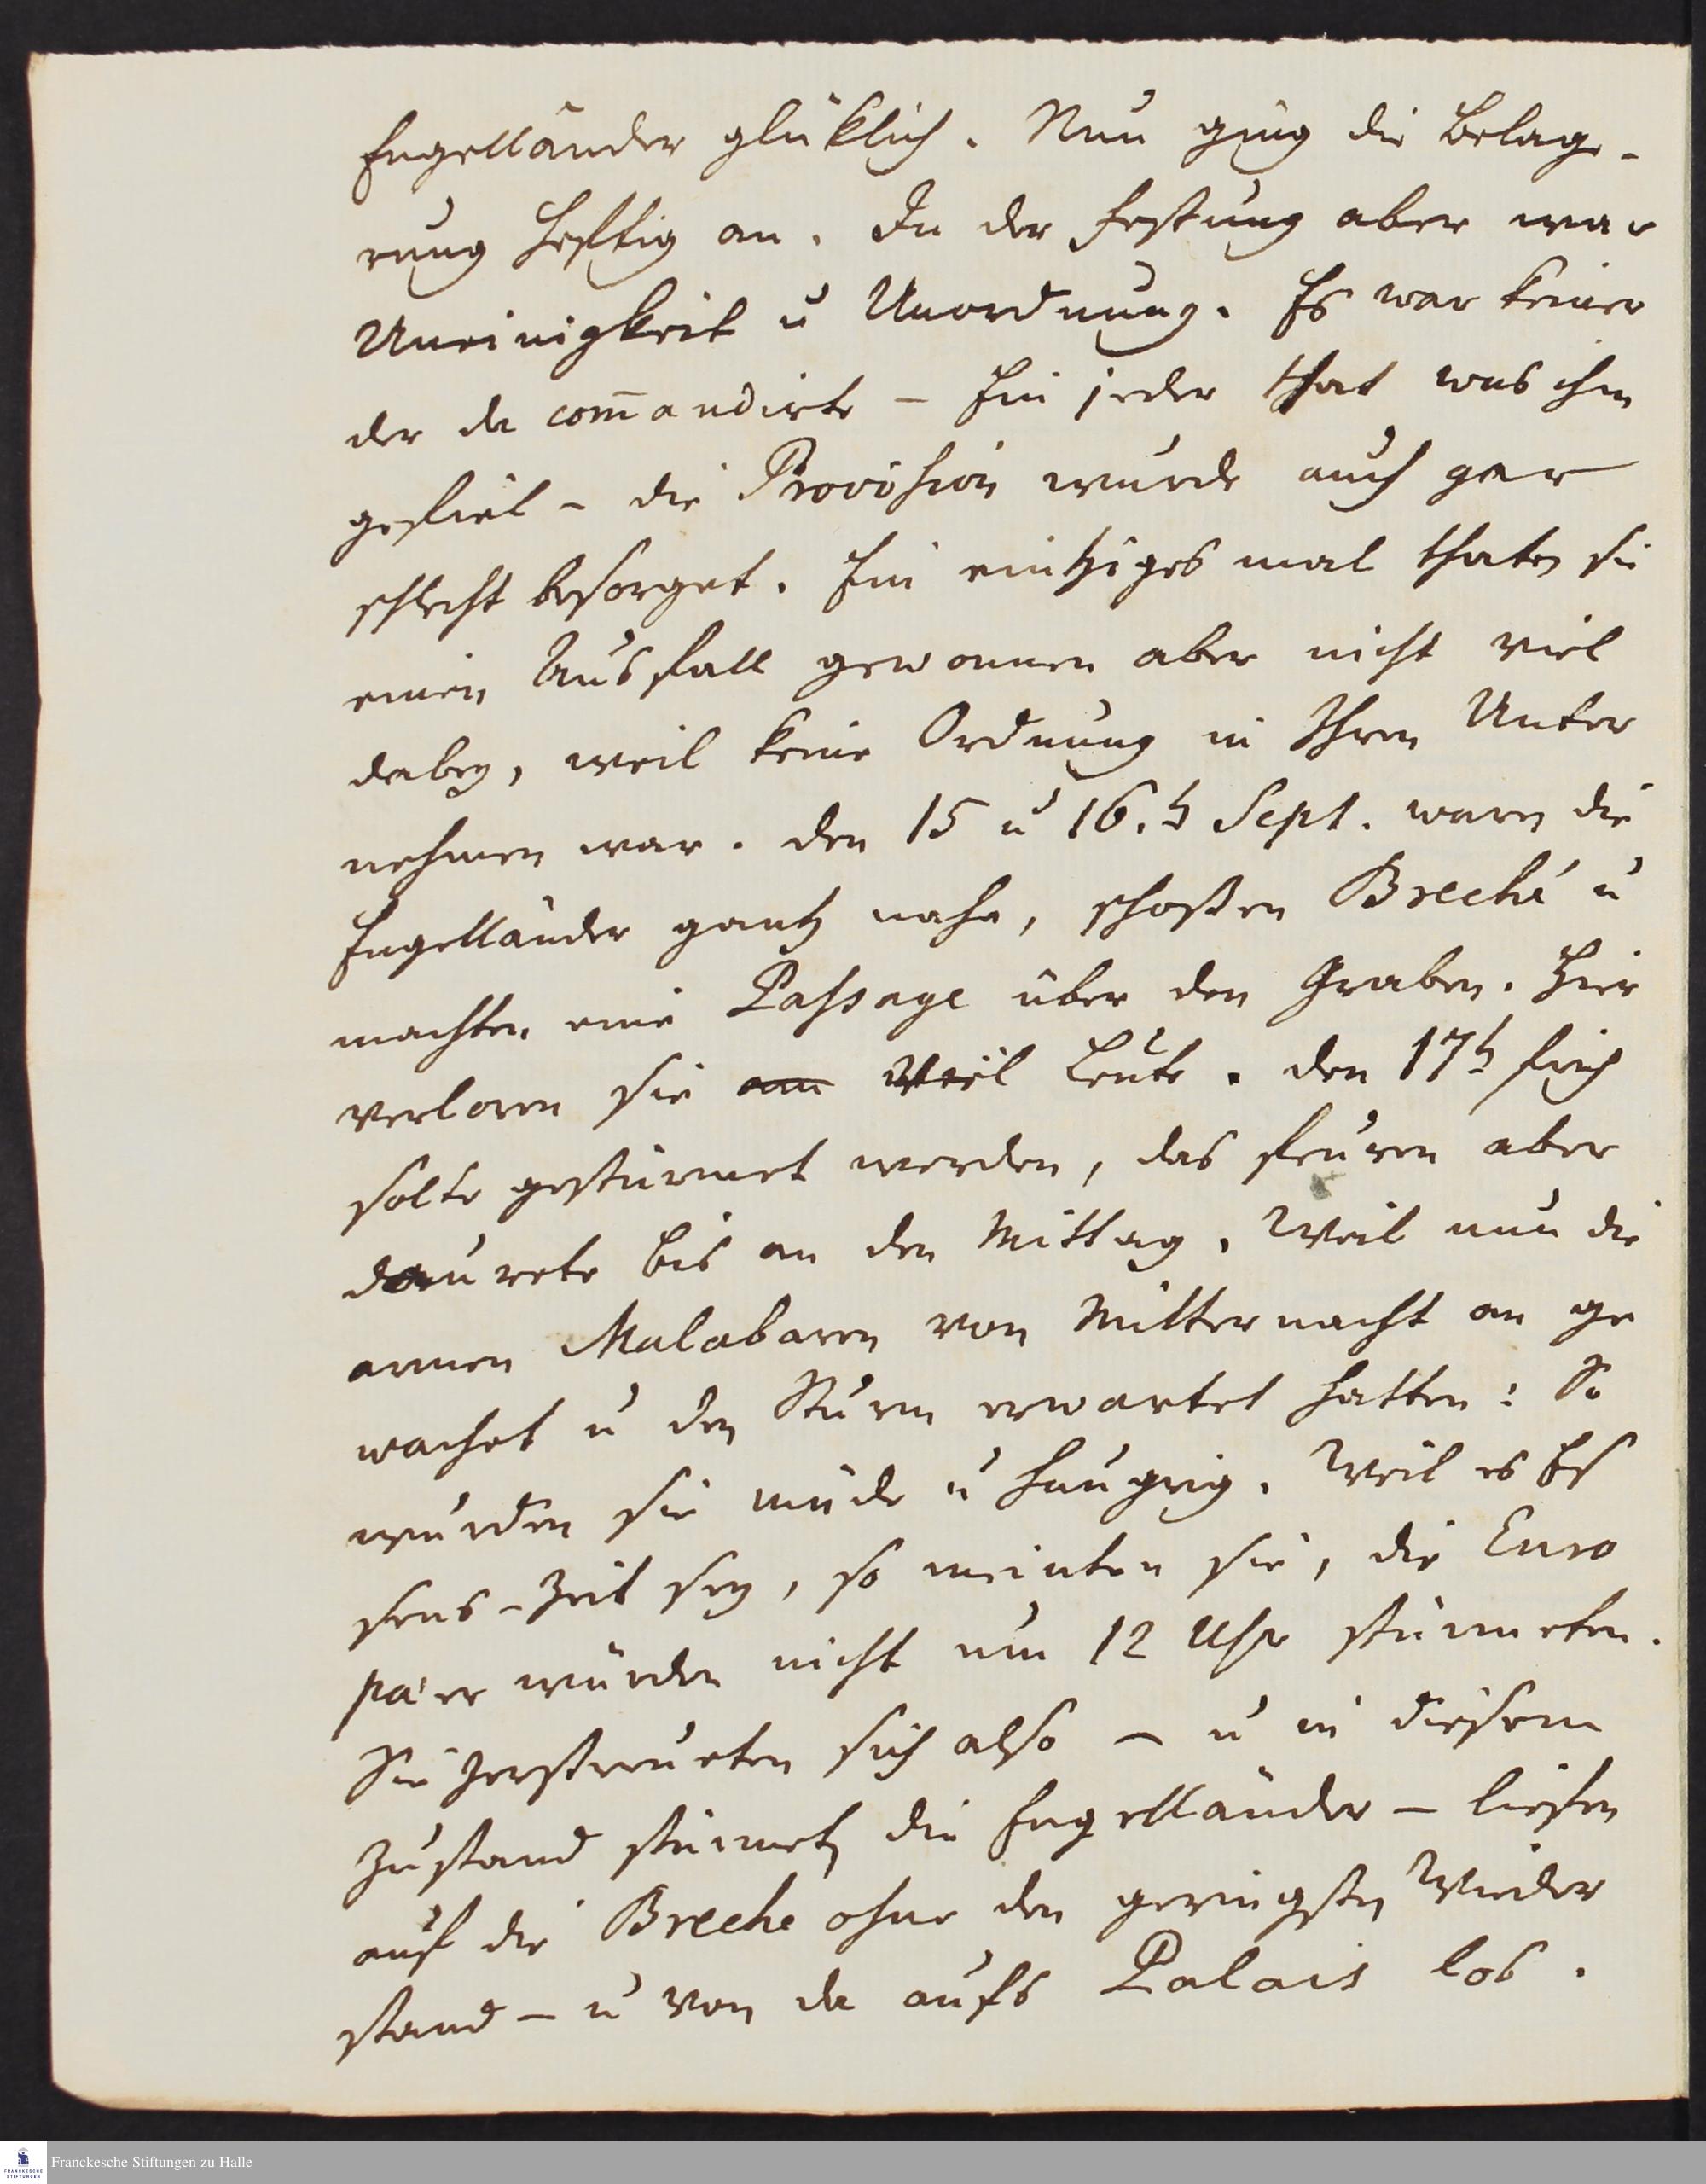 Engelländer glüklich. Nun ging die Belage-
rung heftig an. In der Festung aber war
Uneinigkeit u Unordnung. Es war keiner
der da com̅andirte – Ein jeder that was ihm
gefiel – die Provision wurde auch gar
schlecht besorget. Ein eintziges mal thaten sie
einen Ausfall gewonnen aber nicht viel
dabey, weil keine Ordnung in Ihren Unter
nehmen war. den 15 u 16.t Sept. waren die
Engelländer gantz nahe, schoßen Breché u
machten eine Passage über den Graben. Hier
verloren sie viel Leute. den 17t früh
solte gestürmet werden, das feuren aber
daurete bis an den Mittag. Weil nun die
armen Malabaren von Mitternacht an ge
wachet u den Sturm erwartet hatten: So
wurden sie müde u hungrig. Weil es Eß
sens-Zeit sey, so meinten sie, die Euro
päer würden nicht um 12 Uhr stürmeten.
Sie zerstreueten sich also – u in diesem
Zustand stürmeten die Engelländer – liefen
auf die Breche ohne den geringsten Wieder
stand – u von da aufs Palais los.
Franckesche Stiftungen zu Halle
FRANCKESCHE
STIFTUNGEN